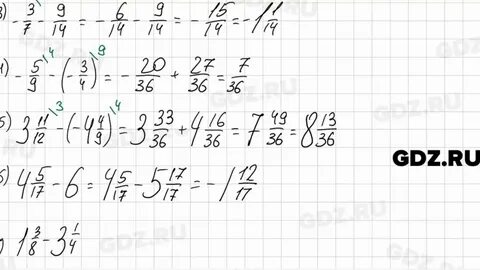 3) - 3/7 \2 - 9/14 = - 6/14 - 9/14 = - 15/14 = -1 1/14
4) - 5/9 \4 - (- 3/4) \9 = - 20/36 + 27/36 = 7/36
5) 3 11/12 \3 - (-4 4/9) \4 = 3 33/36 + 4 16/36 = 7 49/36 = 8 13/36
6) 4 5/17 - 6 = 4 5/17 - 5 17/17 = -1 12/17
1 3/8 - 3 1/4
GDZ.RU